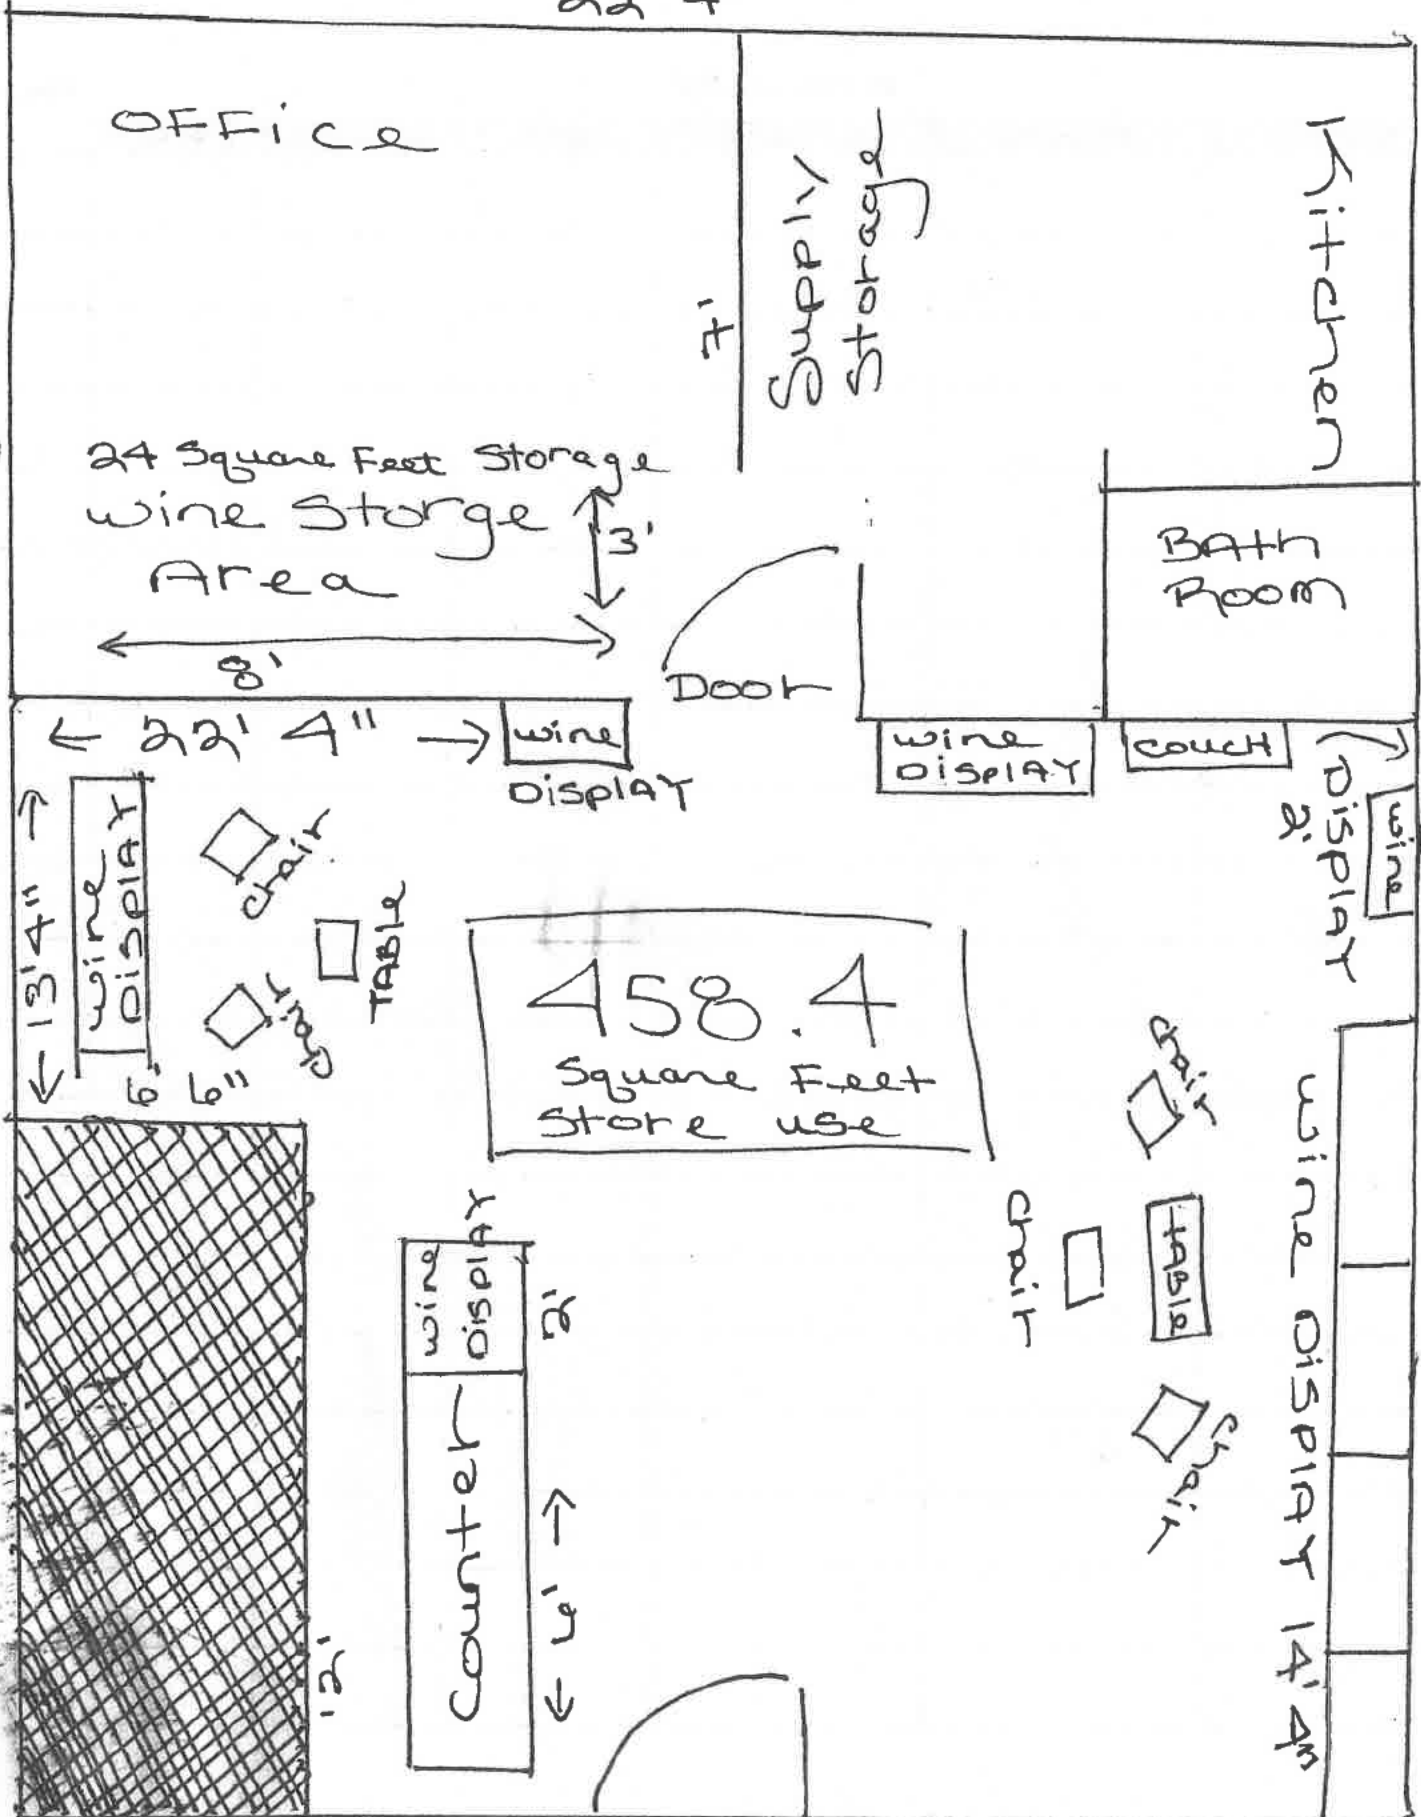 22 4
OFFice
Supply
Storage
Kitchen
7'
24 Square Feet Storage
wine Storge
Area
3'
8'
BAth
Room
Door
22' 4"
wine
DisplAY
wine
DisplAY
couch
2'
DisplAY
wine
13'4"
wine
DisplAY
chair
TABle
chair
6' 6"
458.4
Square Feet
Store use
chair
chair
tABle
chair
wine DisplAY 14' 4"
wine
DisplAY
2'
Counter
12'